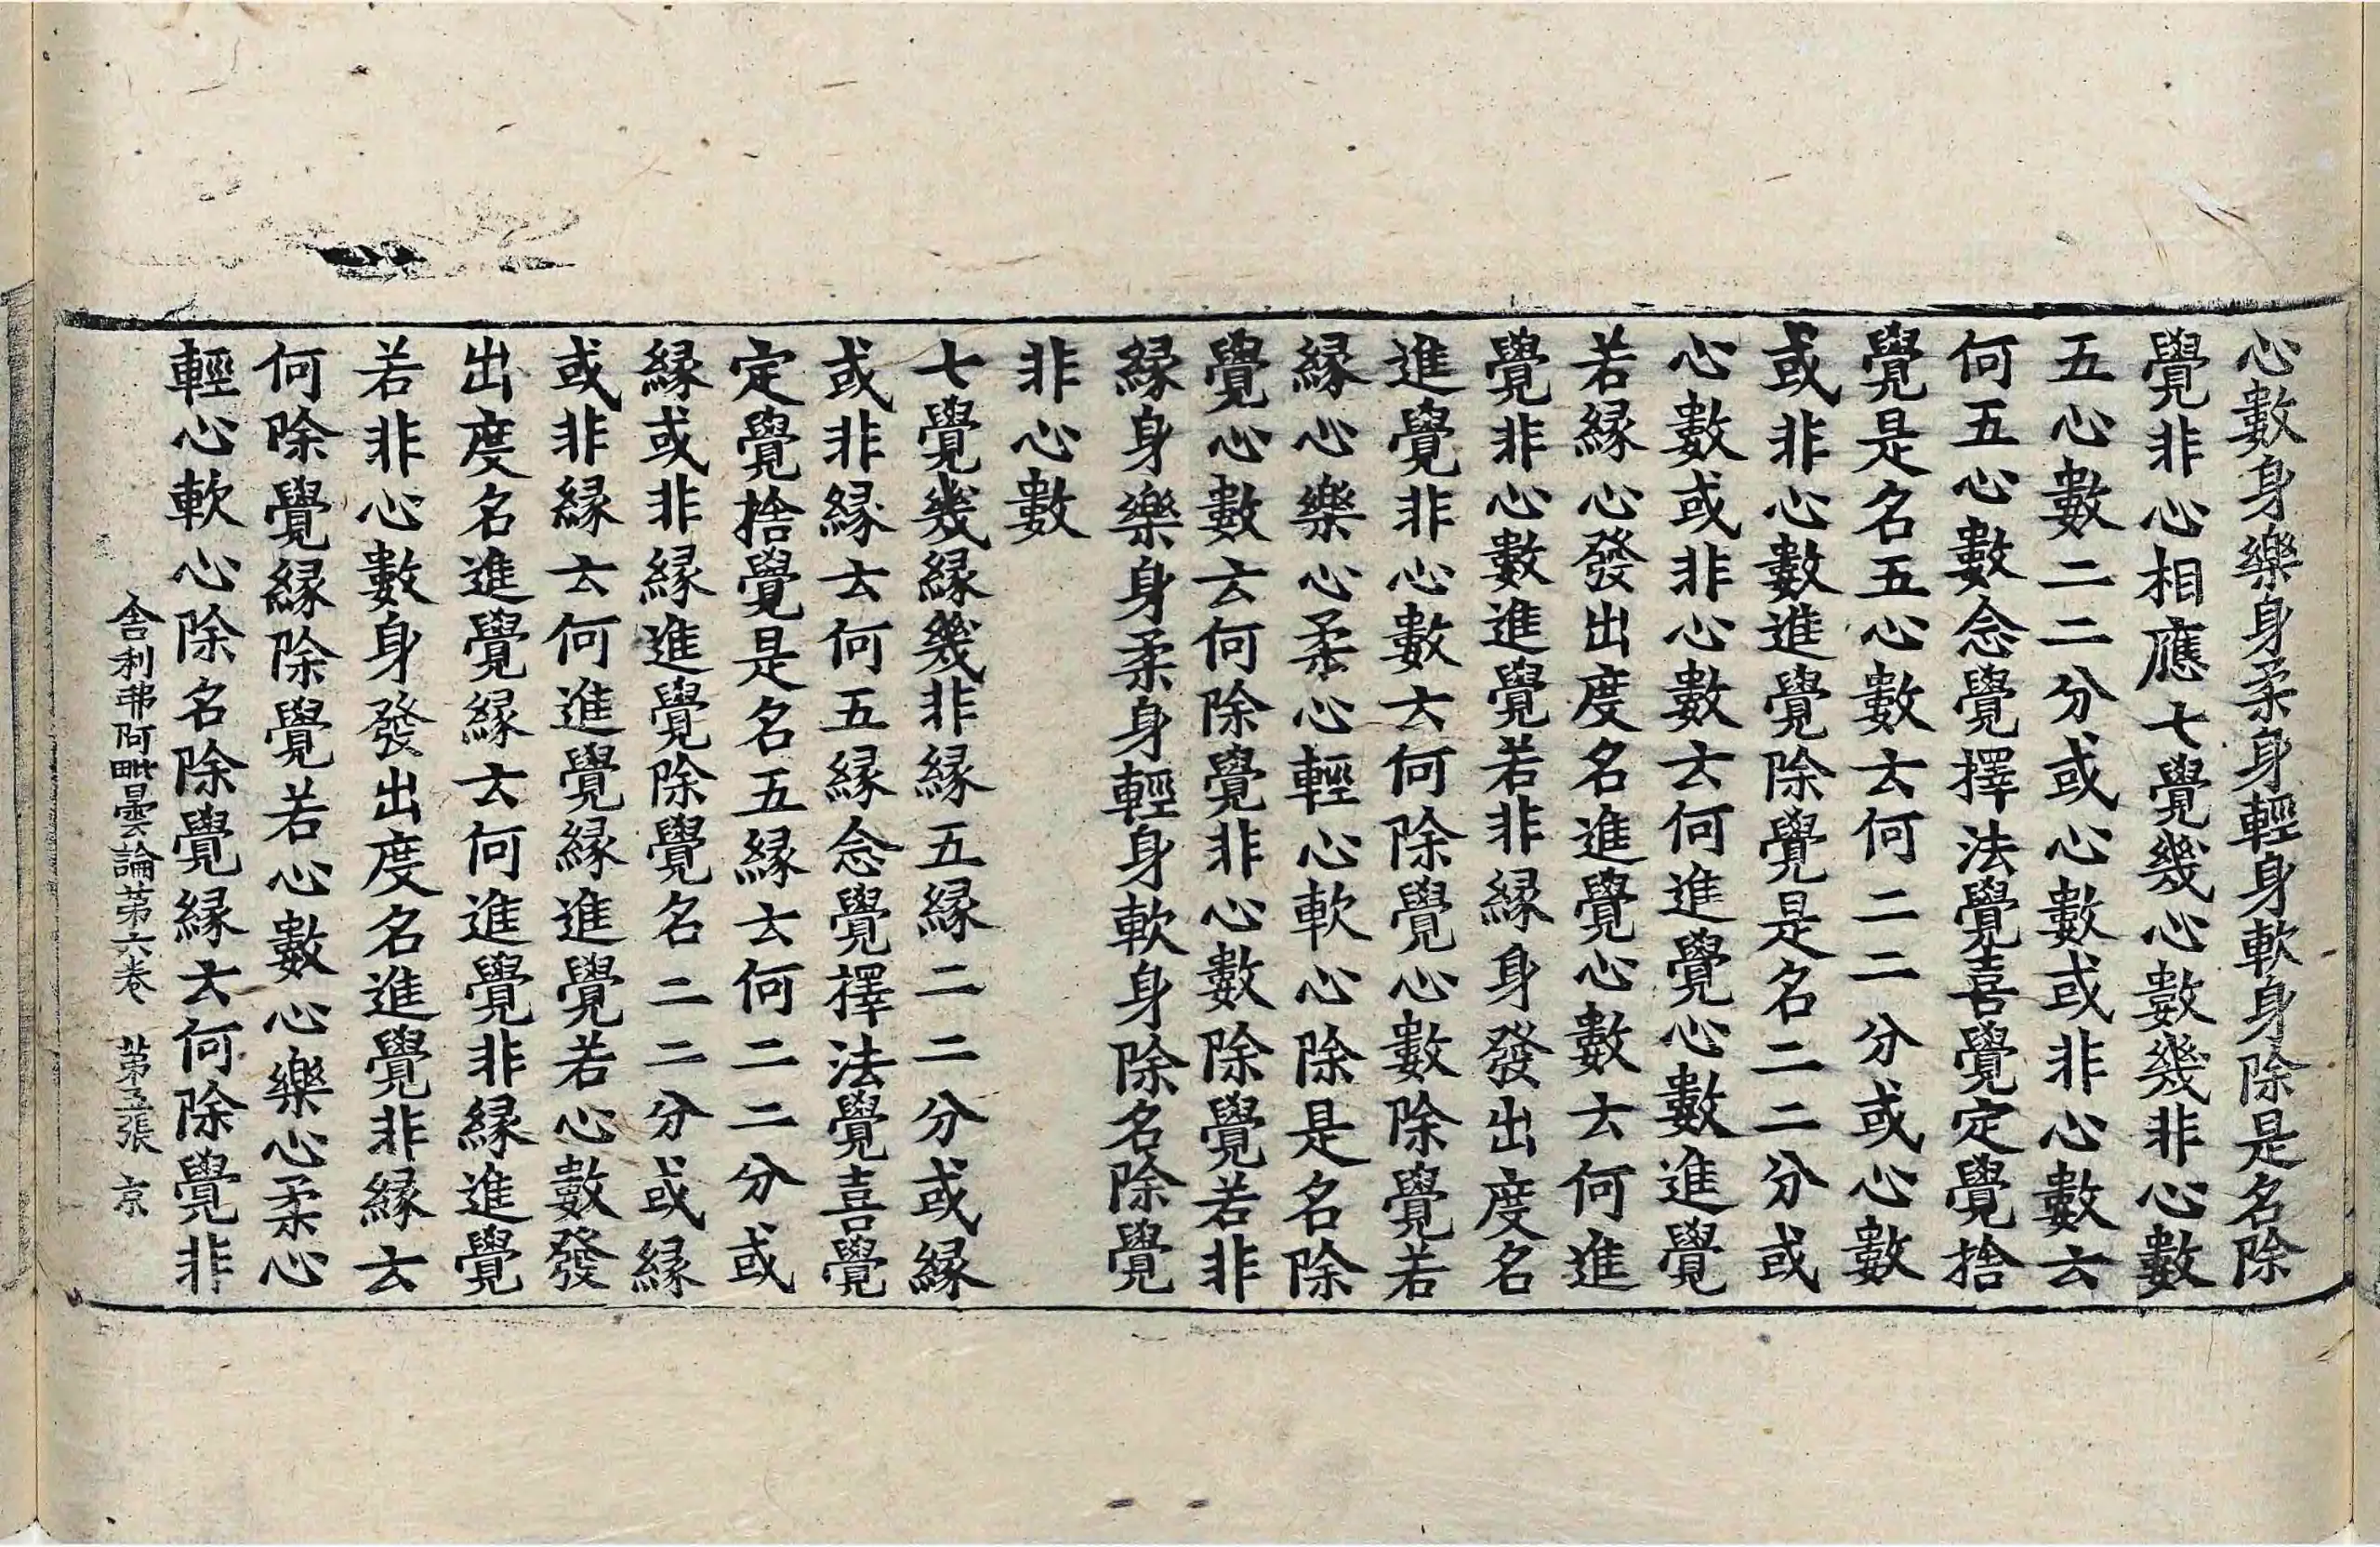 心數身樂身柔身輕身軟身除是名除
覺非心相應七覺幾心數幾非心數
五心數二二分或心數或非心數云
何五心數念覺擇法覺喜覺定覺捨
覺是名五心數云何二二分或心數
或非心數進覺除覺是名二二分或
心數或非心數云何進覺心數進覺
若緣心發出度名進覺心數云何進
覺非心數進覺若非緣身發出度名
進覺非心數云何除覺心數除覺若
緣心樂心柔心輕心軟心除是名除
覺心數云何除覺非心數除覺若非
緣身樂身柔身輕身軟身除名除覺
非心數
七覺幾緣幾非緣五緣二二分或緣
或非緣云何五緣念覺擇法覺喜覺
定覺捨覺是名五緣云何二二分或
緣或非緣進覺除覺名二二分或緣
或非緣云何進覺緣進覺若心數發
出度名進覺緣云何進覺非緣進覺
若非心數身發出度名進覺非緣云
何除覺緣除覺若心數心樂心柔心
輕心軟心除名除覺緣云何除覺非
舍利弗阿毗曇論第六卷 第張 京